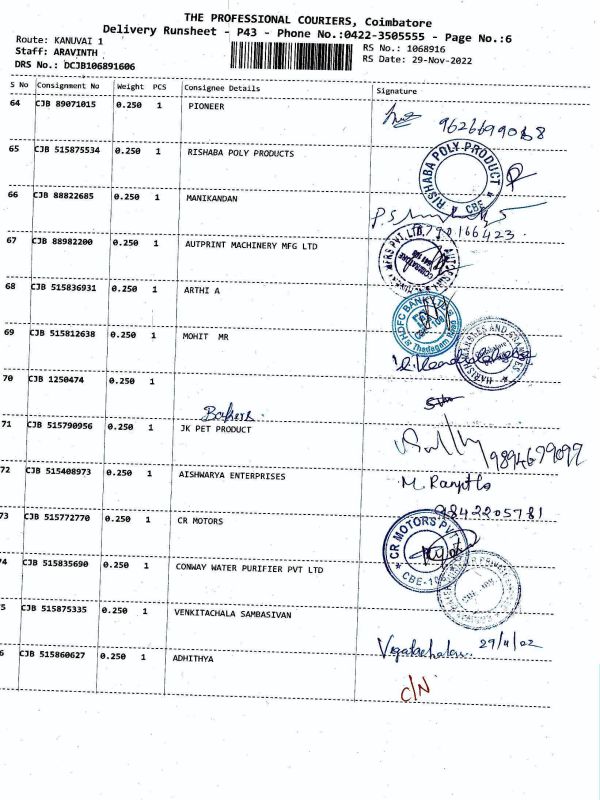 THE PROFESSIONAL COURIERS, Coimbatore
Delivery Runsheet - P43 - Phone No.:0422-3505555 - Page No.:6
Route: KANUVAI 1 RS No.: 1068916
Staff: ARAVINTH RS Date: 29-Nov-2022
DRS No.: DCJB106891606
S No Consignment No Weight PCS Consignee Details Signature
64 CJB 89071015 0.250 1 PIONEER
65 CJB 515875534 0.250 1 RISHABA POLY PRODUCTS
RISHABA POLY PRODUCT
CBE
66 CJB 88822685 0.250 1 MANIKANDAN
67 CJB 88982200 0.250 1 AUTPRINT MACHINERY MFG LTD
68 CJB 515836931 0.250 1 ARTHI A
HDFC BANK LTD
69 CJB 515812638 0.250 1 MOHIT MR
70 CJB 1250474 0.250 1
Bakers.
71 CJB 515790956 0.250 1 JK PET PRODUCT
9894679099
72 CJB 515408973 0.250 1 AISHWARYA ENTERPRISES
M. Ranjith
9842205781
73 CJB 515772770 0.250 1 CR MOTORS
CR MOTORS PVT
CBE-108
4 CJB 515835690 0.250 1 CONWAY WATER PURIFIER PVT LTD
5 CJB 515875335 0.250 1 VENKITACHALA SAMBASIVAN
29/11/02
6 CJB 515860627 0.250 1 ADHITHYA
C/N